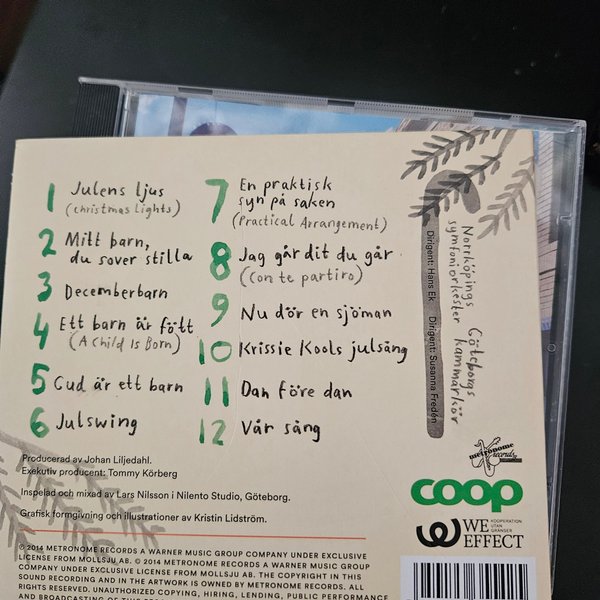 1 Julens ljus
(Christmas Lights)
2 Mitt barn,
du sover stilla
3 Decemberbarn
4 Ett barn är fött
(A Child Is Born)
5 Gud är ett barn
6 Julswing
7 En praktisk
syn på saken
(Practical Arrangement)
8 Jag går dit du går
(Con te partiro)
9 Nu dör en sjöman
10 Krissie Kools julsång
11 Dan före dan
12 Vår sång
Norrköpings
symfoniorkester
Dirigent: Hans Ek
Göteborgs
kammarkör
Dirigent: Susanna Fredén
Producerad av Johan Liljedahl.
Exekutiv producent: Tommy Körberg
Inspelad och mixad av Lars Nilsson i Nilento Studio, Göteborg.
Grafisk formgivning och illustrationer av Kristin Lidström.
metronome
records
coop
WE
EFFECT
KOOPERATION
UTAN
GRÄNSER
℗ 2014 METRONOME RECORDS A WARNER MUSIC GROUP COMPANY UNDER EXCLUSIVE
LICENSE FROM MOLLSJU AB. © 2014 METRONOME RECORDS A WARNER MUSIC GROUP
COMPANY UNDER EXCLUSIVE LICENSE FROM MOLLSJU AB. THE COPYRIGHT IN THIS
SOUND RECORDING AND IN THE ARTWORK IS OWNED BY METRONOME RECORDS. ALL
RIGHTS RESERVED. UNAUTHORIZED COPYING, HIRING, LENDING, PUBLIC PERFORMANCE
AND BROADCASTING OF THIS